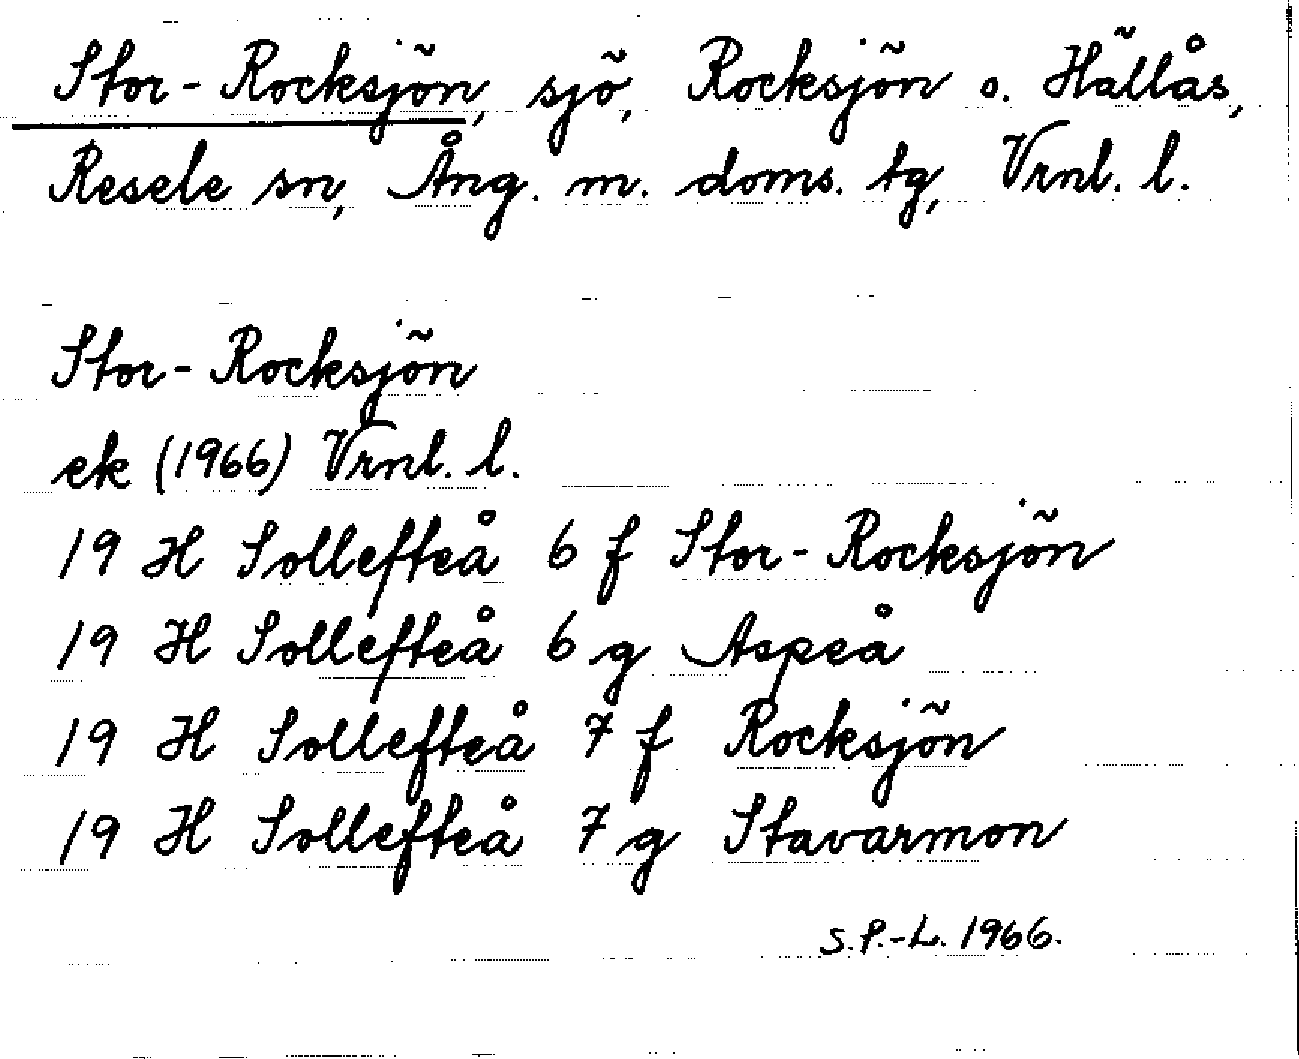 Stor-Rocksjön, sjö, Rocksjön o. Hällås,
Resele sn, Ång. m. doms. tg, Vrnl. l.
Stor-Rocksjön
ek (1966) Vrnl. l.
19 H Sollefteå 6 f Stor-Rocksjön
19 H Sollefteå 6 g Aspeå
19 H Sollefteå 7 f Rocksjön
19 H Sollefteå 7 g Stavarmon
S.P.-L. 1966.